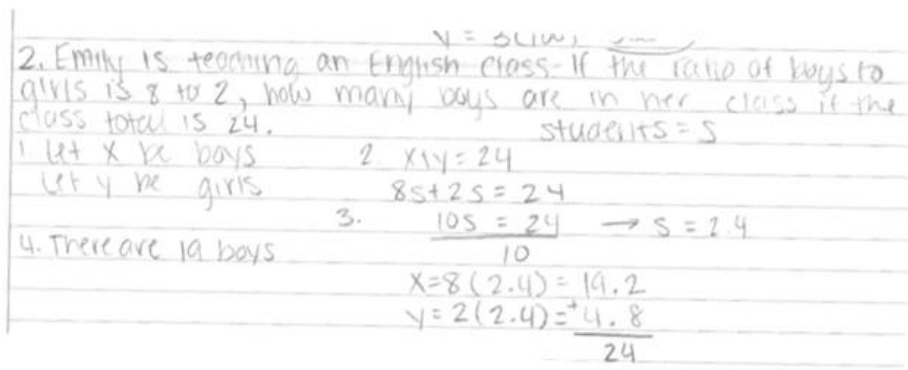 2. Emily is teaching an English class. If the ratio of boys to
girls is 8 to 2, how many boys are in her class if the
class total is 24.
students = S
1. Let x be boys
2. x+y = 24
Let y be girls
8S+2S = 24
3. 10S = 24 → S = 2.4
10
4. There are 19 boys
x=8(2.4) = 19.2
y = 2(2.4) = +4.8
24